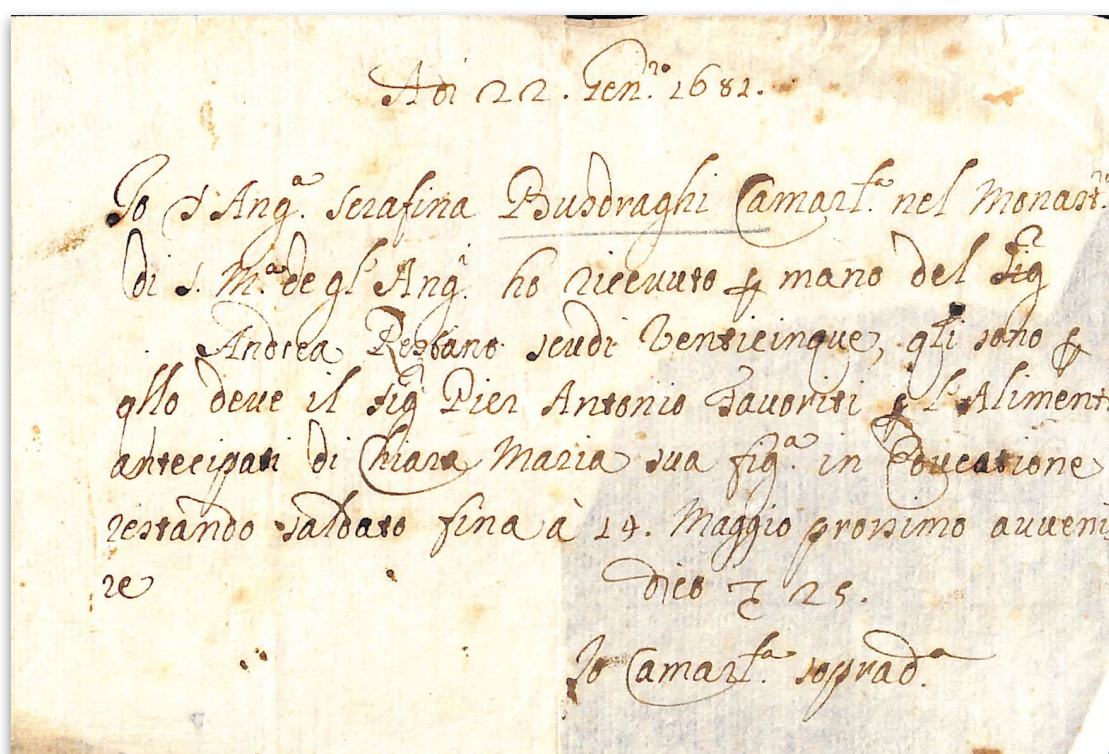 Adi 22. Gen.ro 1681.
Io S. Ang.a Serafina Busdraghi Camarl.a nel Monast.ro
di S. M.a de gl'Ang.i ho riceuuto p mano del Sig.r
Andrea scudi Venticinque, qli sono p
qllo deue il Sig Pier Antonio Fauoriti p l'Aliment
antecipati di Chiara Maria sua fig.a in Educatione
restando saldato fina à 14. Maggio prossimo auueni
re dico 25.
Io Camarl.a soprad.a